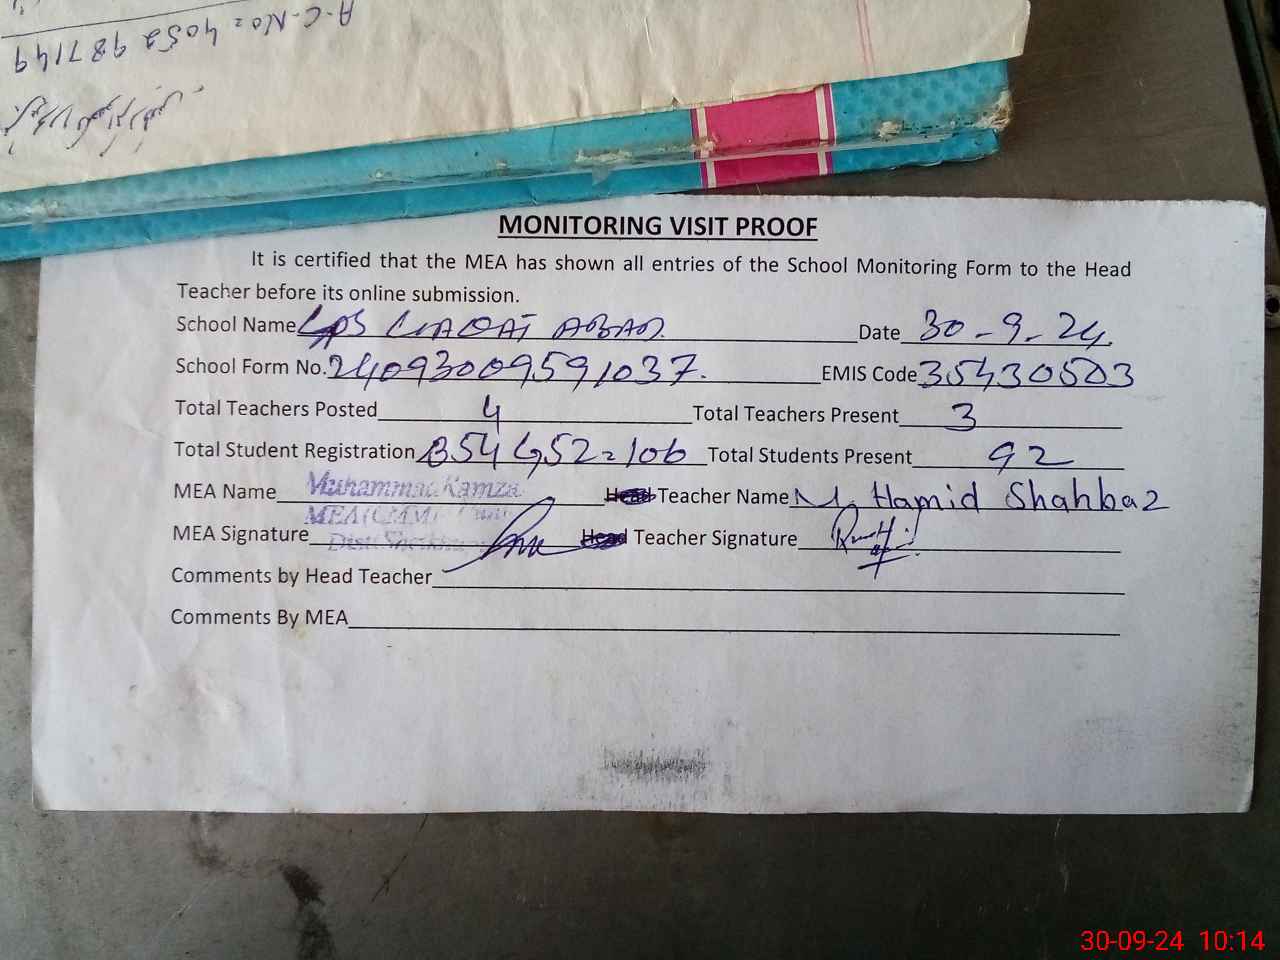 A-C-No = 4052 987149
MONITORING VISIT PROOF
It is certified that the MEA has shown all entries of the School Monitoring Form to the Head
Teacher before its online submission.
School Name GPS LIAQAT ABAD. Date 30-9-24.
School Form No. 24093009591037. EMIS Code 35430503
Total Teachers Posted 4 Total Teachers Present 3
Total Student Registration B54 G52=106 Total Students Present 92
MEA Name Muhammad Hamza Head Teacher Name M. Hamid Shahbaz
MEA (CMM)
MEA Signature Distt. Head Teacher Signature
Comments by Head Teacher
Comments By MEA
30-09-24 10:14